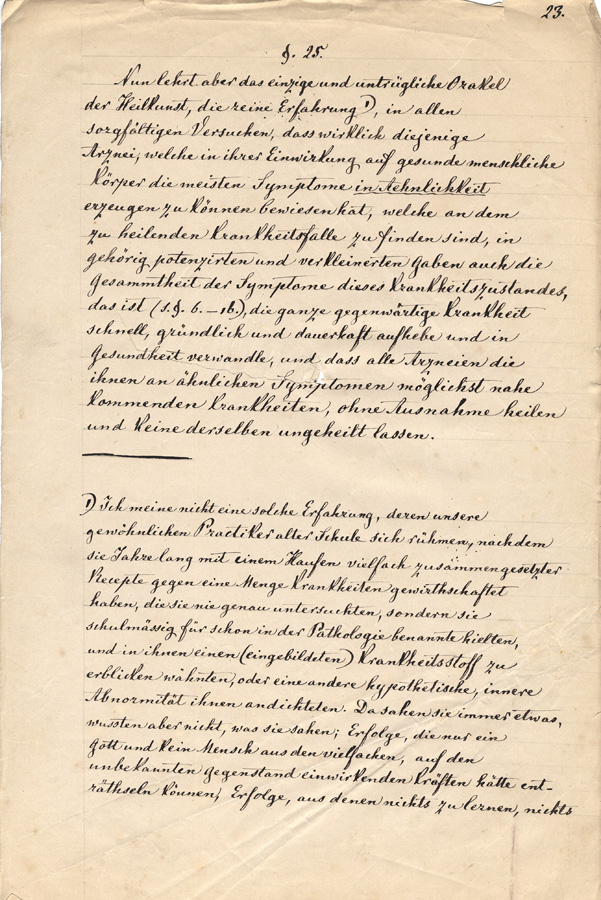 23.
§. 25.
Nun lehrt aber das einzige und untrügliche Orakel
der Heilkunst, die reine Erfahrung 1), in allen
sorgfältigen Versuchen, dass wirklich diejenige
Arznei, welche in ihrer Einwirkung auf gesunde menschliche
Körper die meisten Symptome in Aehnlichkeit
erzeugen zu können bewiesen hat, welche an dem
zu heilenden Krankheitsfalle zu finden sind, in
gehörig potenzirten und verkleinerten Gaben auch die
Gesammtheit der Symptome dieses Krankheitszustandes,
das ist (s. §. 6. – 16.), die ganze gegenwärtige Krankheit
schnell, gründlich und dauerhaft aufhebe und in
Gesundheit verwandle, und dass alle Arzneien die
ihnen an ähnlichen Symptomen möglichst nahe
kommenden Krankheiten, ohne Ausnahme heilen
und keine derselben ungeheilt lassen.
1) Ich meine nicht eine solche Erfahrung, deren unsere
gewöhnlichen Practiker alter Schule sich rühmen, nachdem
sie Jahre lang mit einem Haufen vielfach zusammengesetzter
Recepte gegen eine Menge Krankheiten gewirthschaftet
haben, die sie nie genau untersuchten, sondern sie
schulmässig für schon in der Pathologie benannte hielten,
und in ihnen einen (eingebildeten) Krankheitsstoff zu
erblicken wähnten, oder eine andere hypothetische, innere
Abnormität ihnen andichteten. Da sahen sie immer etwas,
wussten aber nicht, was sie sahen; Erfolge, die nur ein
Gott und kein Mensch aus den vielfachen, auf den
unbekannten Gegenstand einwirkenden Kräften hätte ent-
räthseln können, Erfolge, aus denen nichts zu lernen, nichts